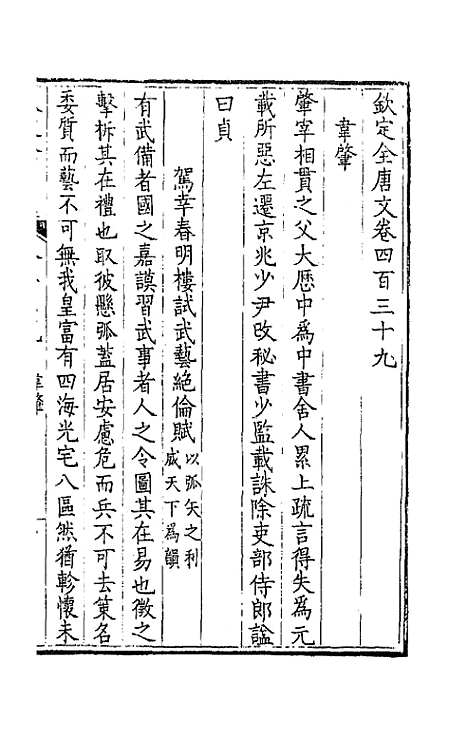 欽定全唐文卷四百三十九
韋肇
肇宰相貫之父大歷中爲中書舍人累上疏言得失爲元
載所惡左遷京兆少尹改秘書少監載誅除吏部侍郎謚
曰貞
駕幸春明樓試武藝絕倫賦以弧矢之利威天下爲韻
有武備者國之嘉謨習武事者人之令圖其在易也徵之
擊柝其在禮也取彼懸弧蓋居安慮危而兵不可去策名
委質而藝不可無我皇富有四海光宅八區然猶軫懷未
韋肇